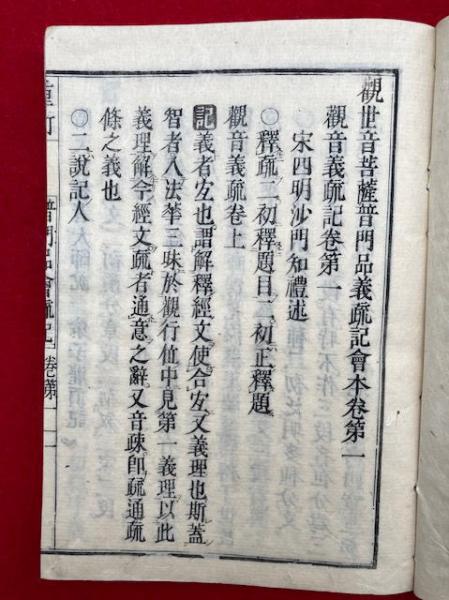 觀世音菩薩普門品義疏記會本卷第一
觀音義疏記卷第一
宋四明沙門知禮述
○釋疏二初釋題目二初正釋題
觀音義疏卷上
記義者宐也謂解釋經文使合宐文義理也斯蓋
智者入法華三昧於觀行位中見第一義理以此
義理解今經文疏者通意之辭又音疎即疏通疏
條之義也
○二說記人
普門品會疏記 卷第一